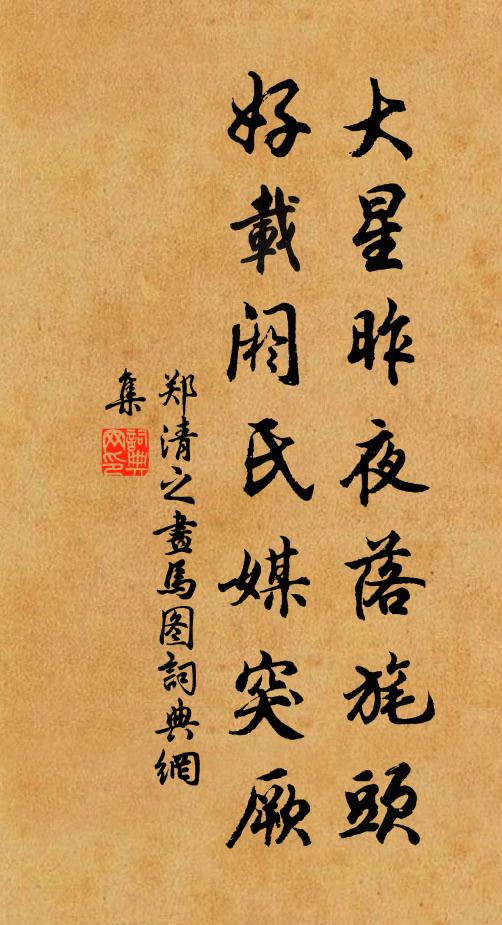 大星昨夜落旄頭
好載閼氏媒突厥
郑清之畫馬图詞典網
集
詞典网印